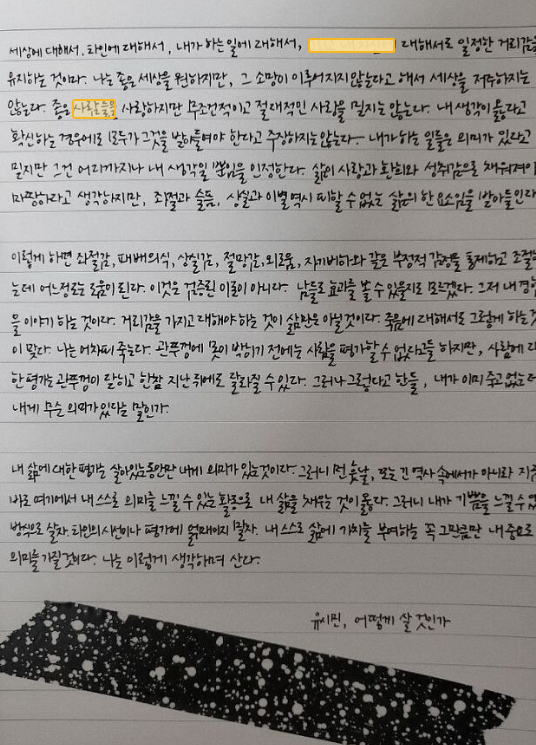 세상에 대해서, 타인에 대해서, 내가 하는 일에 대해서, 대해서도 일정한 거리감을
유지하는 것이다. 나는 좋은 세상을 원하지만, 그 소망이 이루어지지 않는다고 해서 세상을 저주하지는
않는다. 좋은 사람들을 사랑하지만 무조건적이고 절대적인 사랑을 믿지는 않는다. 내 생각이 옳다고
확신하는 경우에도 모두가 그것을 받아들여야 한다고 주장하지는 않는다. 내가 하는 일들은 의미가 있다고
믿지만 그건 어디까지나 내 생각일 뿐임을 인정한다. 삶이 사랑과 환희와 성취감으로 채워져야
마땅하다고 생각하지만, 좌절과 슬픔, 상실과 이별 역시 피할 수 없는 삶의 한 요소임을 받아들인다
이렇게 하면 좌절감, 패배의식, 상실감, 절망감, 외로움, 자기비하와 같은 부정적 감정을 통제하고 조절하
는데 어느정도는 도움이 된다. 이것은 검증된 이론이 아니다. 남들도 효과를 볼 수 있을지도 모르겠다. 그저 내 경험
을 이야기 하는 것이다. 거리감을 가지고 대해야 하는 것이 삶만은 아닐 것이다. 죽음에 대해서도 그렇게 하는 것
이 맞다. 나는 어차피 죽는다. 관뚜껑에 못이 박히기 전에는 사람을 평가할 수 없다고들 하지만, 사람에 대
한 평가는 관뚜껑이 닫히고 한참 지난 뒤에도 달라질 수 있다. 그러나 그렇다고 한들, 내가 이미 죽고 없는데
내게 무슨 의미가 있다는 말인가.
내 삶에 대한 평가는 살아있는 동안만 내게 의미가 있는 것이다. 그러니 먼 훗날, 또는 긴 역사 속에서가 아니라 지금
바로 여기에서 내 스스로 의미를 느낄 수 있는 활동으로 내 삶을 채우는 것이 옳다. 그러니 내가 기쁨을 느낄 수 있
방식으로 살자. 타인의 시선이나 평가에 얽매이지 말자. 내 스스로 삶에 가치를 부여하는 꼭 그만큼만 내 중요도
의미를 가질 것이다. 나는 이렇게 생각하며 산다.
유시민, 어떻게 살 것인가